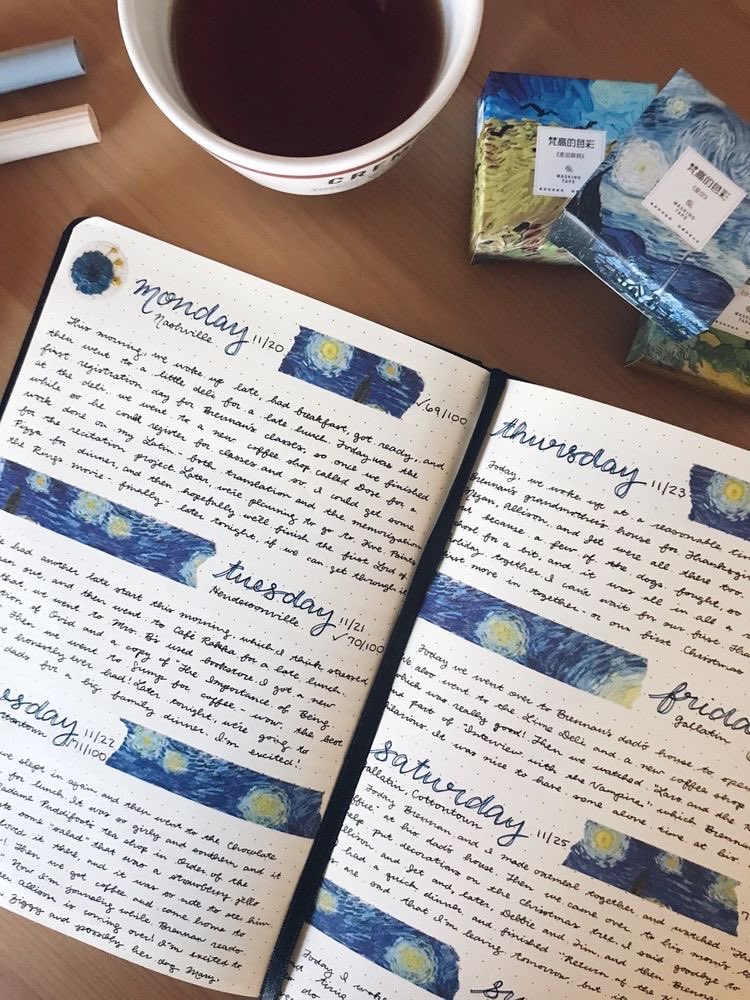 CREM
梵高的色彩
《麦田群鸦》
&
MASKING
TAPE
梵高的色彩
《星空》
&
MASKING
TAPE
monday 11/20
Nashville
✓69/100
This morning, we woke up late, had breakfast, got ready, and
then went to a little deli for a late lunch. Today was the
first registration day for Brennan's classes, so once we finished
at the deli, we went to a new coffee shop called Dose for a
while so he could register for classes and so I could get some
work done on my Latin - both translation and the memorization
for the recitation project. Later, we're planning to go to Five Points
Pizza for dinner, and then hopefully we'll finish the first Lord of
the Rings movie, finally, late tonight if we can get through it
tuesday 11/21
Hendersonville
✓70/100
had another late start this morning, which I think stressed
out, and then went to Café Rakka for a late lunch.
that, we went to Mrs. B's used bookstore. I got a new
of Ovid and a copy of "The Importance of Being
Then we went to Sump for coffee - wow, the best
honestly ever had! Later tonight, we're going to
dad's for a big family dinner. I'm excited!
esday 11/22
ottontown
71/100
we slept in again and then went to the Chocolate
for lunch. It was so girly and southern and it
Madame Puddifoot's tea shop in Order of the
ate some "salad" that was a strawberry jello
loved it there, and it was so cute to see him
Then we got coffee and came home to
Now I'm journaling while Brennan reads.
Allison is coming over! I'm excited to
Ziggy and possibly her dog Mary.
thursday 11/23
Today, we woke up at a reasonable
Brennan's grandmother's house for Thanksgi
Megan, Allison, and Jet were all there too.
because a few of the dogs fought, so
short for a bit, and it was all in all a
holiday together. I can't wait for our first
more in together or our first Christmas
frida
Gallatin
Today we went over to Brennan's dad's house to
We also went to the Lime Deli and a new coffee shop
which was really good! Then we watched "Lars and the
and part of "Interview with the Vampire," which Brennan
hilarious. It was nice to have some alone time at his
saturday 11/25
Gallatin, Cottontown
Today Brennan and I made oatmeal together and watched "The
Office" at his dad's house. Then we came over to his mom's
put decorations on the Christmas tree. I said goodbye to
Allison and Jet and, later, Debbie and Jim, and then Brenn
had a quick dinner and finished "Return of the
are sad that I'm leaving tomorrow, but
Today I woke